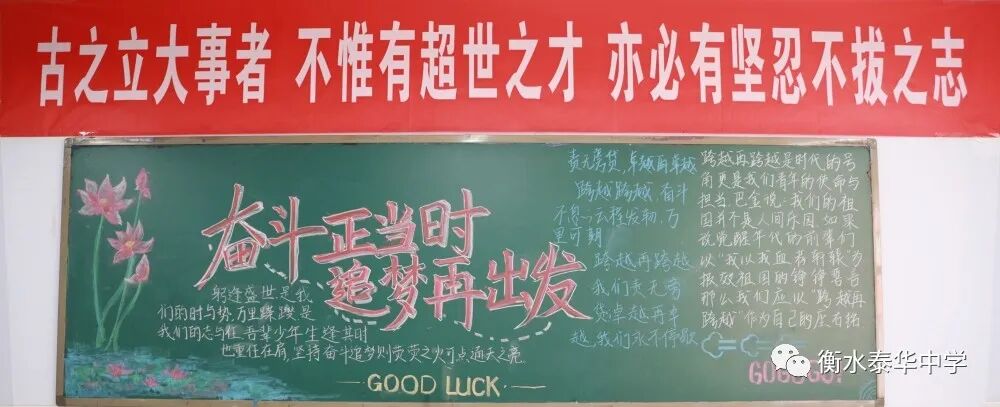 古之立大事者 不惟有超世之才 亦必有坚忍不拔之志
奋斗正当时
追梦再出发
躬逢盛世,是我
们的时与势,万里蹀躞是
我们的志与任,吾辈少年生逢其时
也重任在肩,坚持奋斗追梦则荧荧之火可点通天之亮
GOOD LUCK
责无旁贷,卓越再卓越
跨越跨越,奋斗
不息,云程发轫,万
里可期
跨越再跨越
我们责无旁
贷卓越再卓
越,我们永不停歇
跨越再跨越是时代的号
角更是我们青年的使命与
担当.巴金说,我们的祖
国并不是人间乐园,如果
说觉醒年代的前辈们
以"我以我血荐轩辕"为
报效祖国的铮铮誓言
那么我们应以"跨越再
跨越"作为自己的座右铭
衡水泰华中学